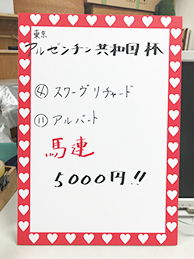 東京
アルゼンチン共和国杯
④ スワーヴリチャード
⑪ アルバート
馬連
5000円!!